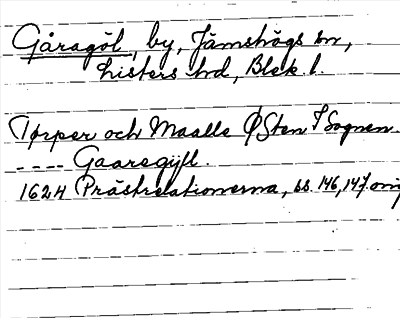 Gåragöl, by, Jämshögs sn,
Listers hd, Blek. l.
Torper och Maalle Østen I Sognen.
---- Gaaregiyl.
1624 Prästrelationerna, ss. 146, 147 orig